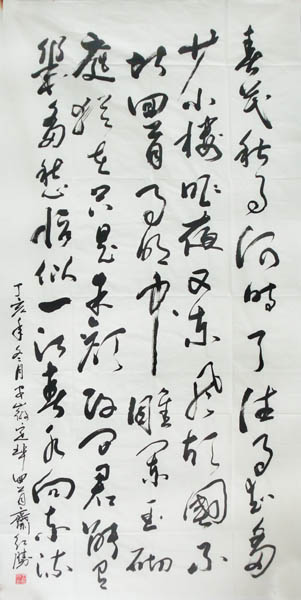 春花秋月何時了往事知多
少小樓昨夜又東風故國不
堪回首月明中雕闌玉砌
應猶在只是朱顏改问君能有
幾多愁恰似一江春水向東流
丁亥年冬月安徽定埠回首齋紅勝